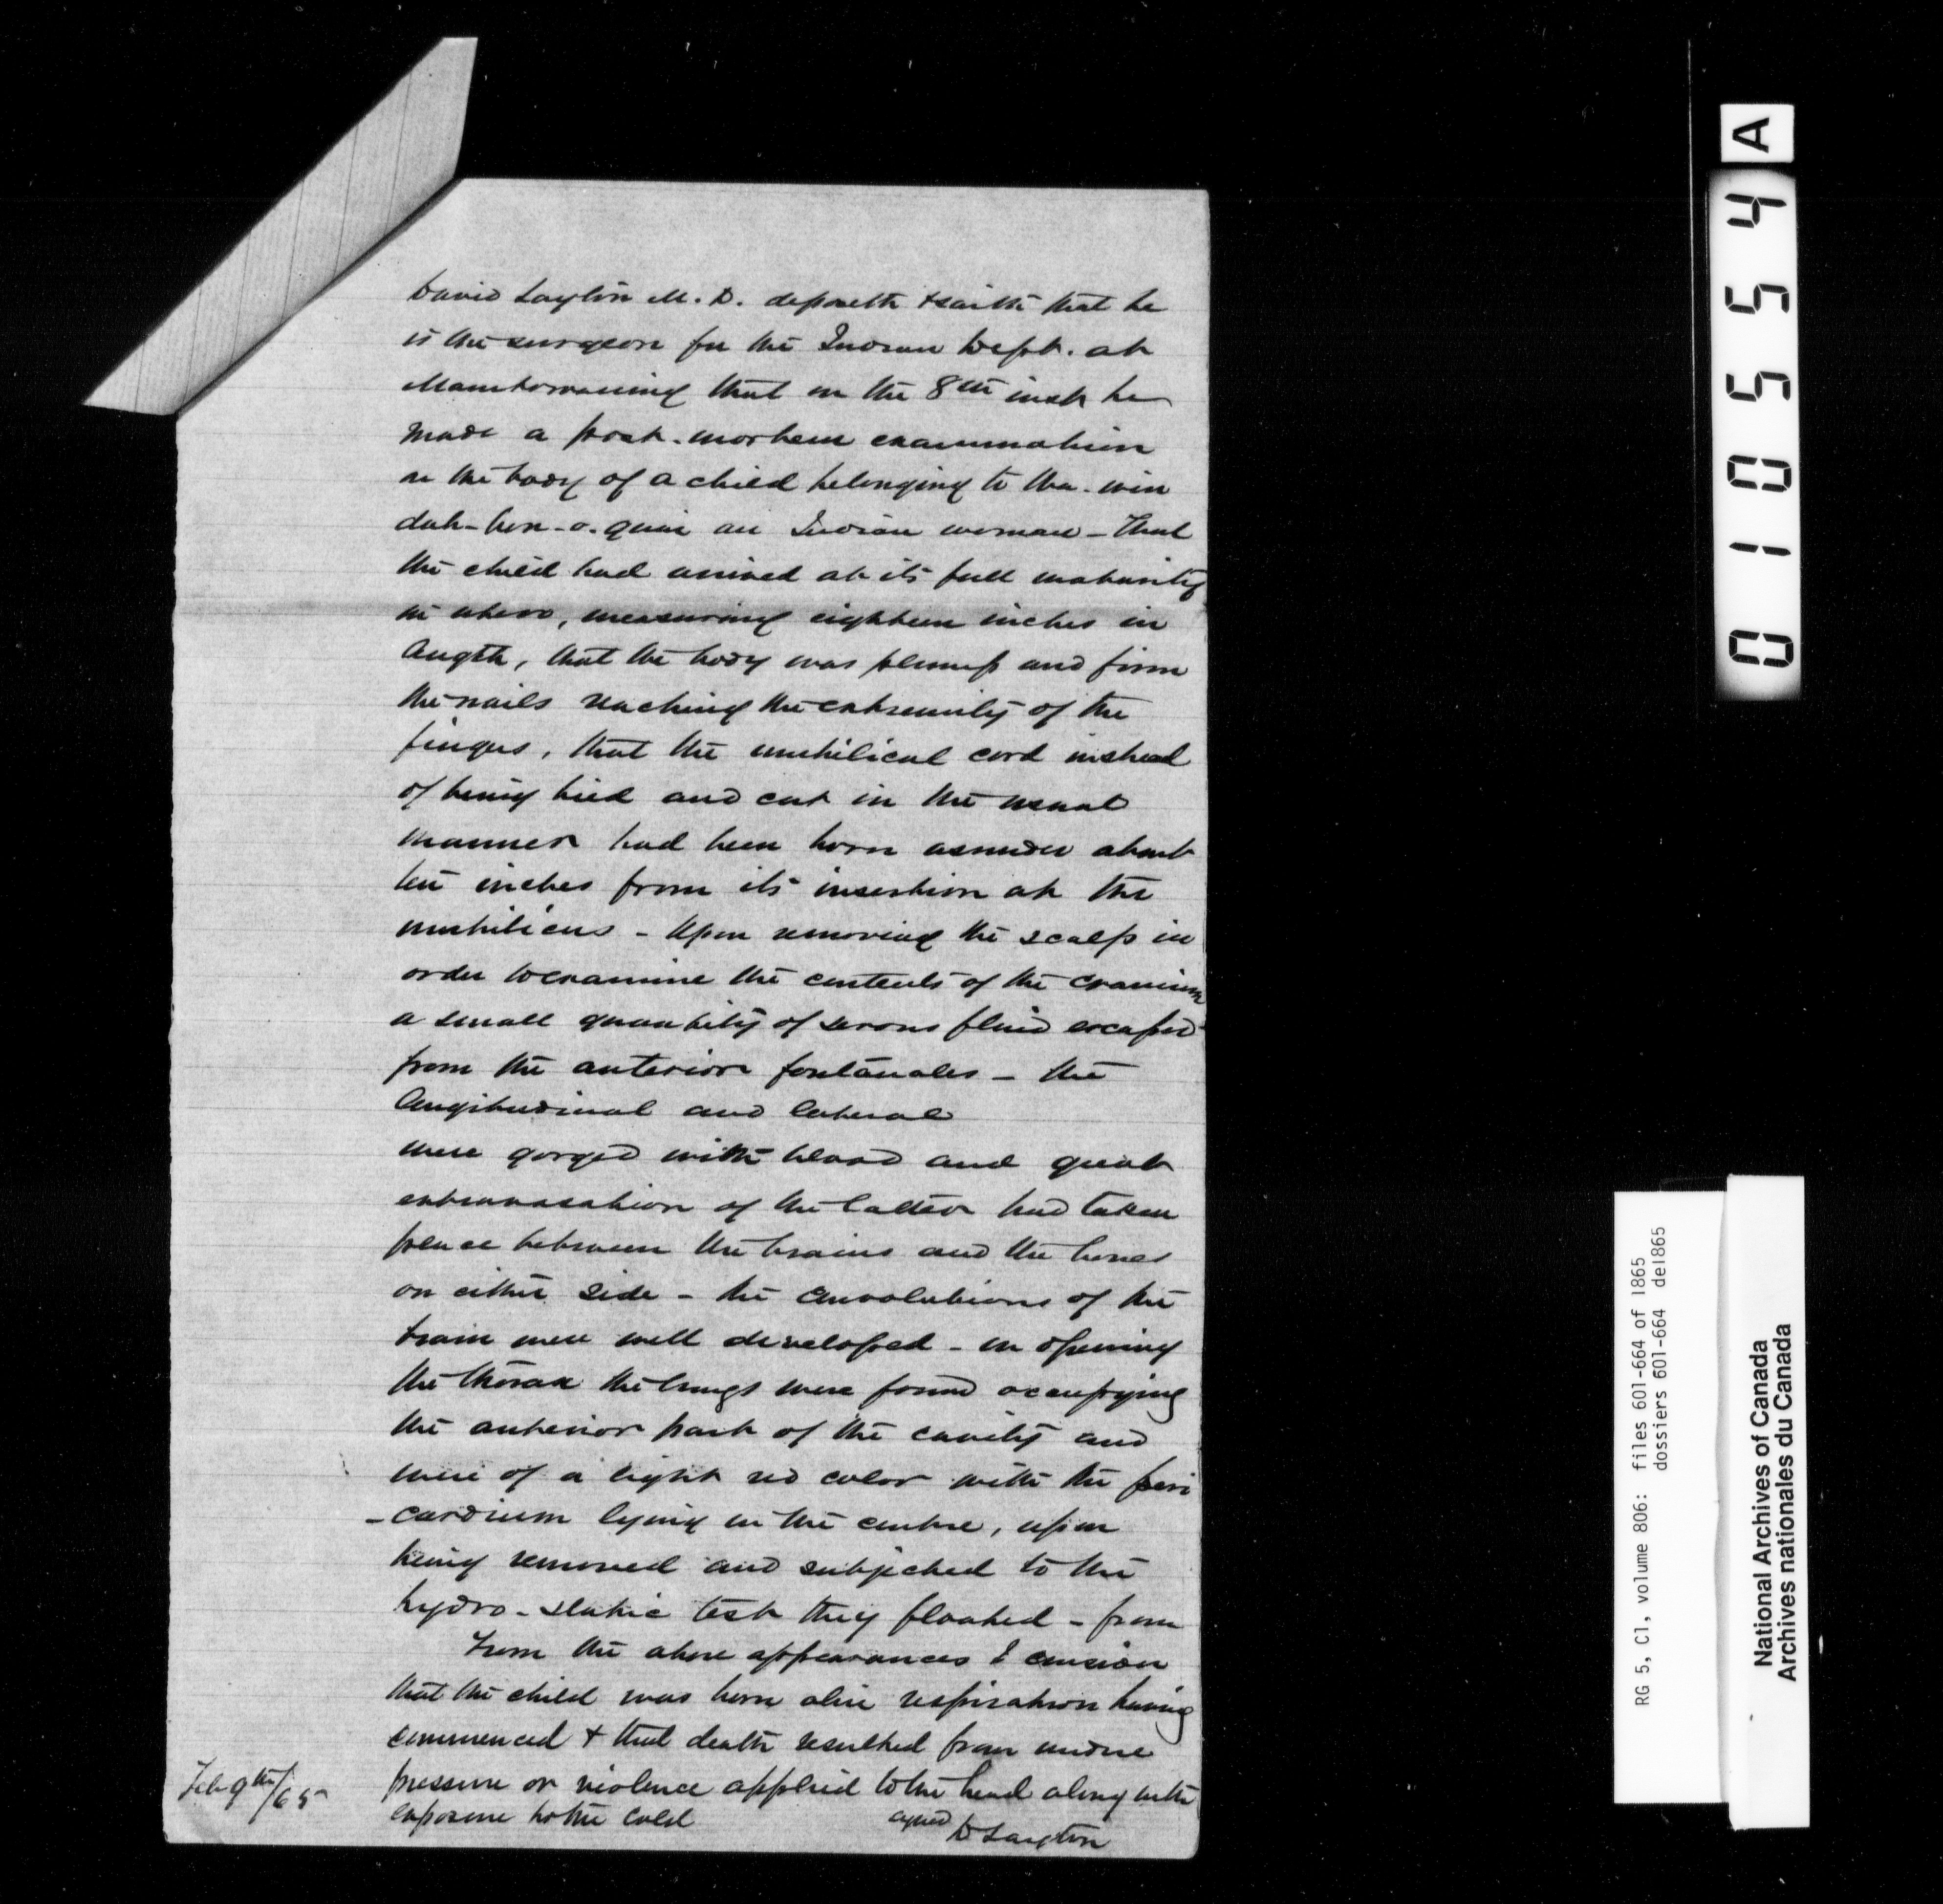 David Layton M.D. deposeth & saith that he
is the surgeon for the Indian Dept. at
Manitowaning that on the 8th inst he
made a post-mortem examination
on the body of a child belonging to Wa-win
dah-bun-o-quai an Indian woman - that
the child had arrived at its full maturity
in utero, measuring eighteen inches in
length, that the body was plump and firm
the nails reaching the extremity of the
fingers, that the umbilical cord instead
of being tied and cut in the usual
manner had been torn asunder about
ten inches from its insertion at the
umbilicus - Upon removing the scalp in
order to examine the contents of the cranium
a small quantity of serous fluid escaped
from the anterior fontanales - the
longitudinal and lateral
were gorged with blood and great
extravasation of the latter had taken
place between the brains and the bones
on either side - the convolutions of the
brain were well developed - on opening
the thorax the lungs were found occupying
the anterior part of the cavity and
were of a light red color with the peri
-cardium lying in the centre, upon
being removed and subjected to the
hydro-static test they floated - from
From the above appearances I consider
that the child was born alive respiration having
commenced & that death resulted from undue
pressure or violence applied to the head along with
exposure to the cold
signed D Layton
Feb 9th/65
01055 4 A
RG 5, C1, volume 806: files 601-664 of 1865
dossiers 601-664 de1865
National Archives of Canada
Archives nationales du Canada